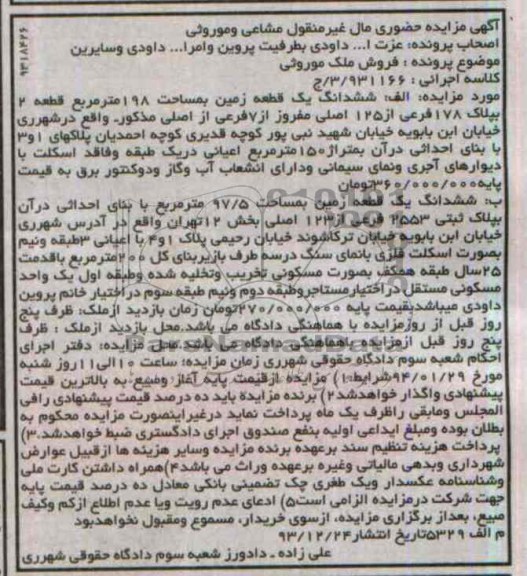 آگهی مزایده حضوری مال غیرمنقول مشاعی وموروثی
اصحاب پرونده: عزت ا... داودی بطرفیت پروین وامرا... داودی وسایرین
موضوع پرونده : فروش ملک موروثی
کلاسه اجرائی : ۳/۹۳۱۱۶۶/ج
مورد مزایده: الف: ششدانگ یک قطعه زمین بمساحت ۱۹۸مترمربع قطعه ۲
بپلاک ۱۷۸فرعی از۱۲۵ اصلی مفروز از۷فرعی از اصلی مذکور. واقع درشهرری
خیابان ابن بابویه خیابان شهید نبی پور کوچه قدیری کوچه احمدیان پلاکهای ۱و۳
با بنای احداثی درآن بمتراژ۱۵۰مترمربع اعیانی دریک طبقه وفاقد اسکلت با
دیوارهای آجری ونمای سیمانی ودارای انشعاب آب وگاز ودوکنتور برق به قیمت
پایه۳۶۰/۰۰۰/۰۰۰تومان
ب: ششدانگ یک قطعه زمین بمساحت ۹۷/۵ مترمربع با بنای احداثی درآن
بپلاک ثبتی ۲۵۵۳ فرعی از۱۲۳ اصلی بخش ۱۲تهران واقع در آدرس شهرری
خیابان ابن بابویه خیابان ترکاشوند خیابان رحیمی پلاک ۱و۴ با اعیانی ۳طبقه ونیم
بصورت اسکلت فلزی بانمای سنگ درسه طرف بازیربنای کل ۲۰۰مترمربع باقدمت
۲۵سال طبقه همکف بصورت مسکونی تخریب وتخلیه شده وطبقه اول یک واحد
مسکونی مستقل دراختیارمستاجروطبقه دوم ونیم طبقه سوم دراختیار خانم پروین
داودی میباشدبقیمت پایه ۲۷۰/۰۰۰/۰۰۰تومان زمان بازدید ازملک: ظرف پنج
روز قبل از روزمزایده با هماهنگی دادگاه می باشد.محل بازدید ازملک : ظرف
پنج روز قبل ازمزایده باهماهنگی دادگاه می باشد.محل مزایده: دفتر اجرای
احکام شعبه سوم دادگاه حقوقی شهرری زمان مزایده: ساعت ۱۰الی۱۱روز شنبه
مورخ ۹۴/۰۱/۲۹شرایط:۱) مزایده ازقیمت پایه آغاز ومبیع به بالاترین قیمت
پیشنهادی واگذار خواهدشد۲) برنده مزایده باید ده درصد قیمت پیشنهادی رافی
المجلس ومابقی راظرف یک ماه پرداخت نماید درغیراینصورت مزایده محکوم به
بطلان بوده ومبلغ ابداعی اولیه بنفع صندوق اجرای دادگستری ضبط خواهدشد.۳)
پرداخت هزینه تنظیم سند برعهده برنده مزایده وسایر هزینه ها ازقبیل عوارض
شهرداری وبدهی مالیاتی وغیره برعهده وراث می باشد۴)همراه داشتن کارت ملی
وشناسنامه عکسدار ویک طغری چک تضمینی بانکی معادل ده درصد قیمت پایه
جهت شرکت درمزایده الزامی است۵) ادعای عدم رویت ویا عدم اطلاع ازکم وکیف
مبیع، بعداز برگزاری مزایده، ازسوی خریدار، مسموع ومقبول نخواهدبود
م الف ۵۳۲۹تاریخ انتشار۹۳/۱۲/۲۴
علی زاده ـ دادورز شعبه سوم دادگاه حقوقی شهرری
۹۳۱۸۴۲۶